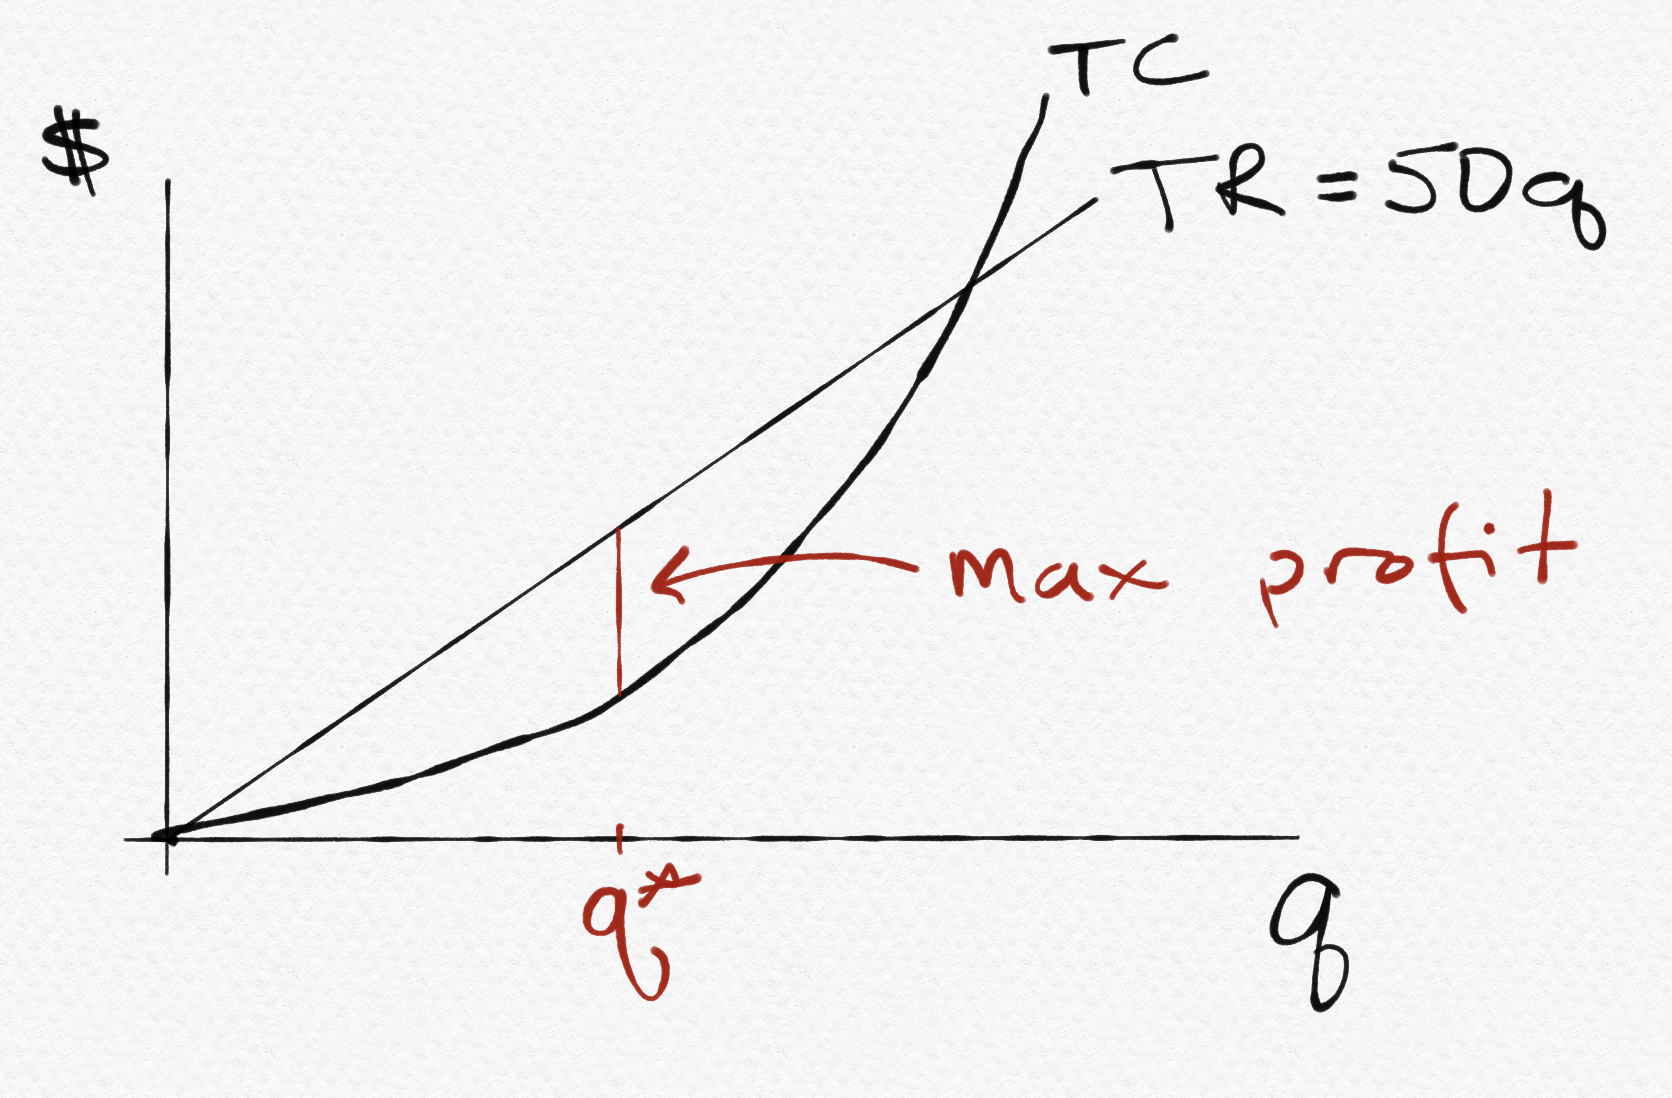 TC
$
TR = 50q
max profit
q*
q